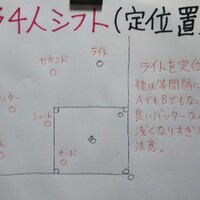 4人シフト(定位置
ライト
セカンド
ンター
ショート
サード
ライトを定位
後は等間隔に
AでもBでもない
良いバッターなん
浅くなりすぎ
注意。